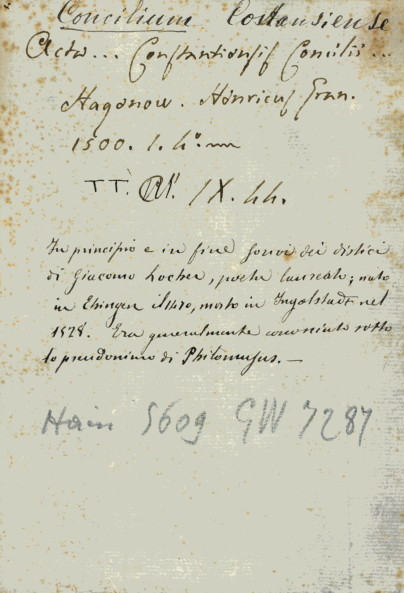 Concilium Costansiense
Acta... Constantiensis Concilii...
Hagenow. Hinricus Gran.
1500. 1. 4°.
TT. IX. 44.
In principio e in fine sonvi dei distici
di Giacomo Locher, poeta laureato; nato
in Ehingen il 1470, morto in Ingolstadt nel
1528. Era generalmente conosciuto sotto
lo pseudonimo di Philomusus. —
Hain 5609 GW 7287